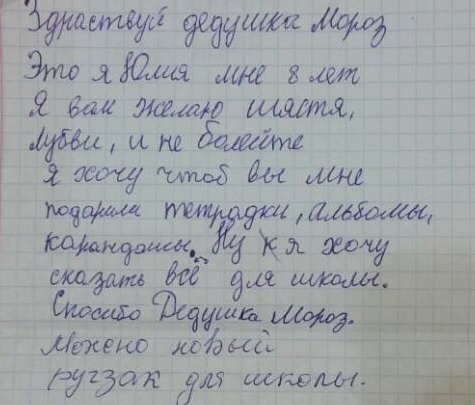 Здраствуй дедушка Мороз
Это я Юлия мне 8 лет
Я вам желаю шястя,
лубви, и не болейте
я хочу чтоб вы мне
подарили тетрадки, альбомы,
карандашы. Ну я хочу
сказать всё для школы.
Спосибо Дедушка Мороз.
Можено новый
ругзак для школы.